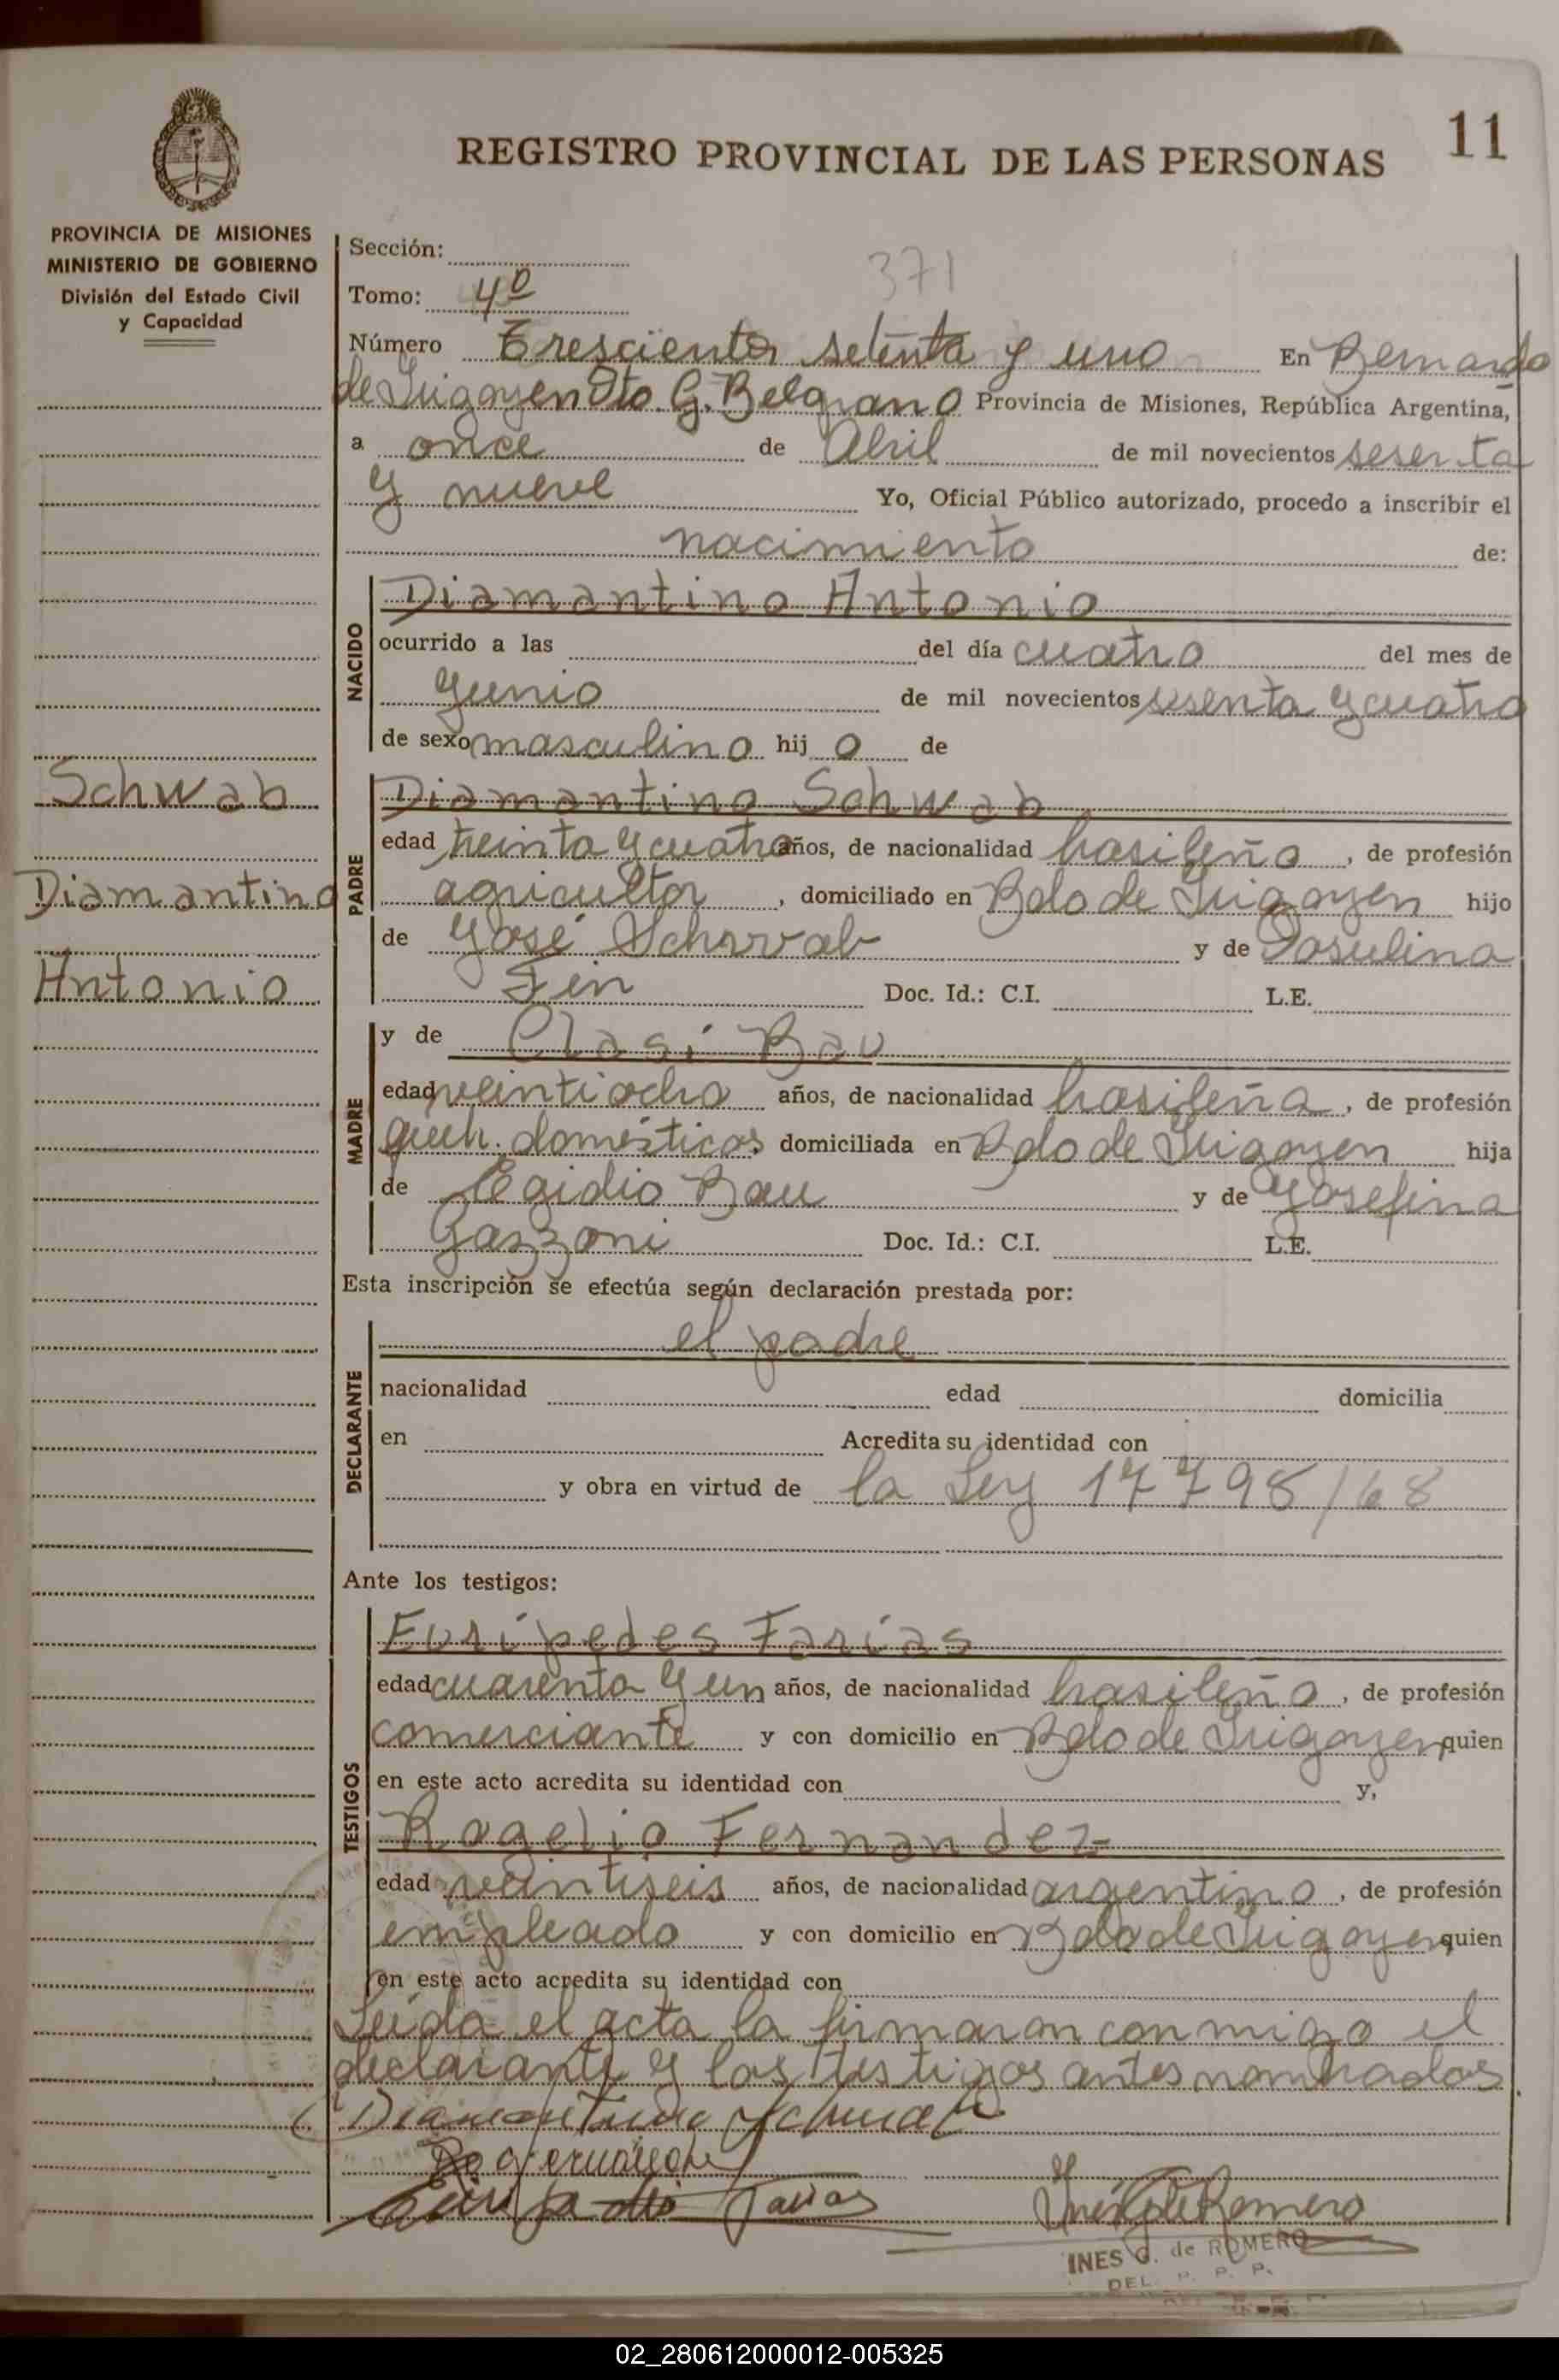 11
REGISTRO PROVINCIAL DE LAS PERSONAS
PROVINCIA DE MISIONES
MINISTERIO DE GOBIERNO
División del Estado Civil
y Capacidad
Sección:
371
Tomo: 4º
Número Trescientos setenta y uno En Bernardo
de Irigoyen Dto. G. Belgrano Provincia de Misiones, República Argentina,
a once de Abril de mil novecientos sesenta
y nueve Yo, Oficial Público autorizado, procedo a inscribir el
nacimiento de:
NACIDO
Diamantino Antonio
ocurrido a las del día cuatro del mes de
Junio de mil novecientos sesenta y cuatro
de sexo masculino hij o de
Schwab
Diamantino
Antonio
PADRE
Diamantino Schwab
edad treinta y cuatro años, de nacionalidad brasileño, de profesión
agricultor, domiciliado en Bdo de Irigoyen hijo
de José Schwab y de
Fin Doc. Id.: C.I. L.E.
MADRE
y de Clasi Bau
edad veintiocho años, de nacionalidad brasileña, de profesión
queh. domésticos domiciliada en Bdo de Irigoyen hija
de Egidio Bau y de Josefina
Gazzoni Doc. Id.: C.I. L.E.
Esta inscripción se efectúa según declaración prestada por:
DECLARANTE
el padre
nacionalidad edad domicilia
en Acredita su identidad con
y obra en virtud de la Ley 17798/68
Ante los testigos:
TESTIGOS
Eurípedes Farías
edad cuarenta y un años, de nacionalidad brasileño, de profesión
comerciante y con domicilio en Bdo de Irigoyen quien
en este acto acredita su identidad con y,
Rogelio Fernandez
edad veintiseis años, de nacionalidad argentino, de profesión
empleado y con domicilio en Bdo de Irigoyen quien
en este acto acredita su identidad con
Leída el acta la firmaron conmigo el
declarante y los testigos antes nombrados
Diamantino Schwab
Farias
Inés G de Romero
INES G. de ROMERO
DEL. R. P. P.
02_280612000012-005325